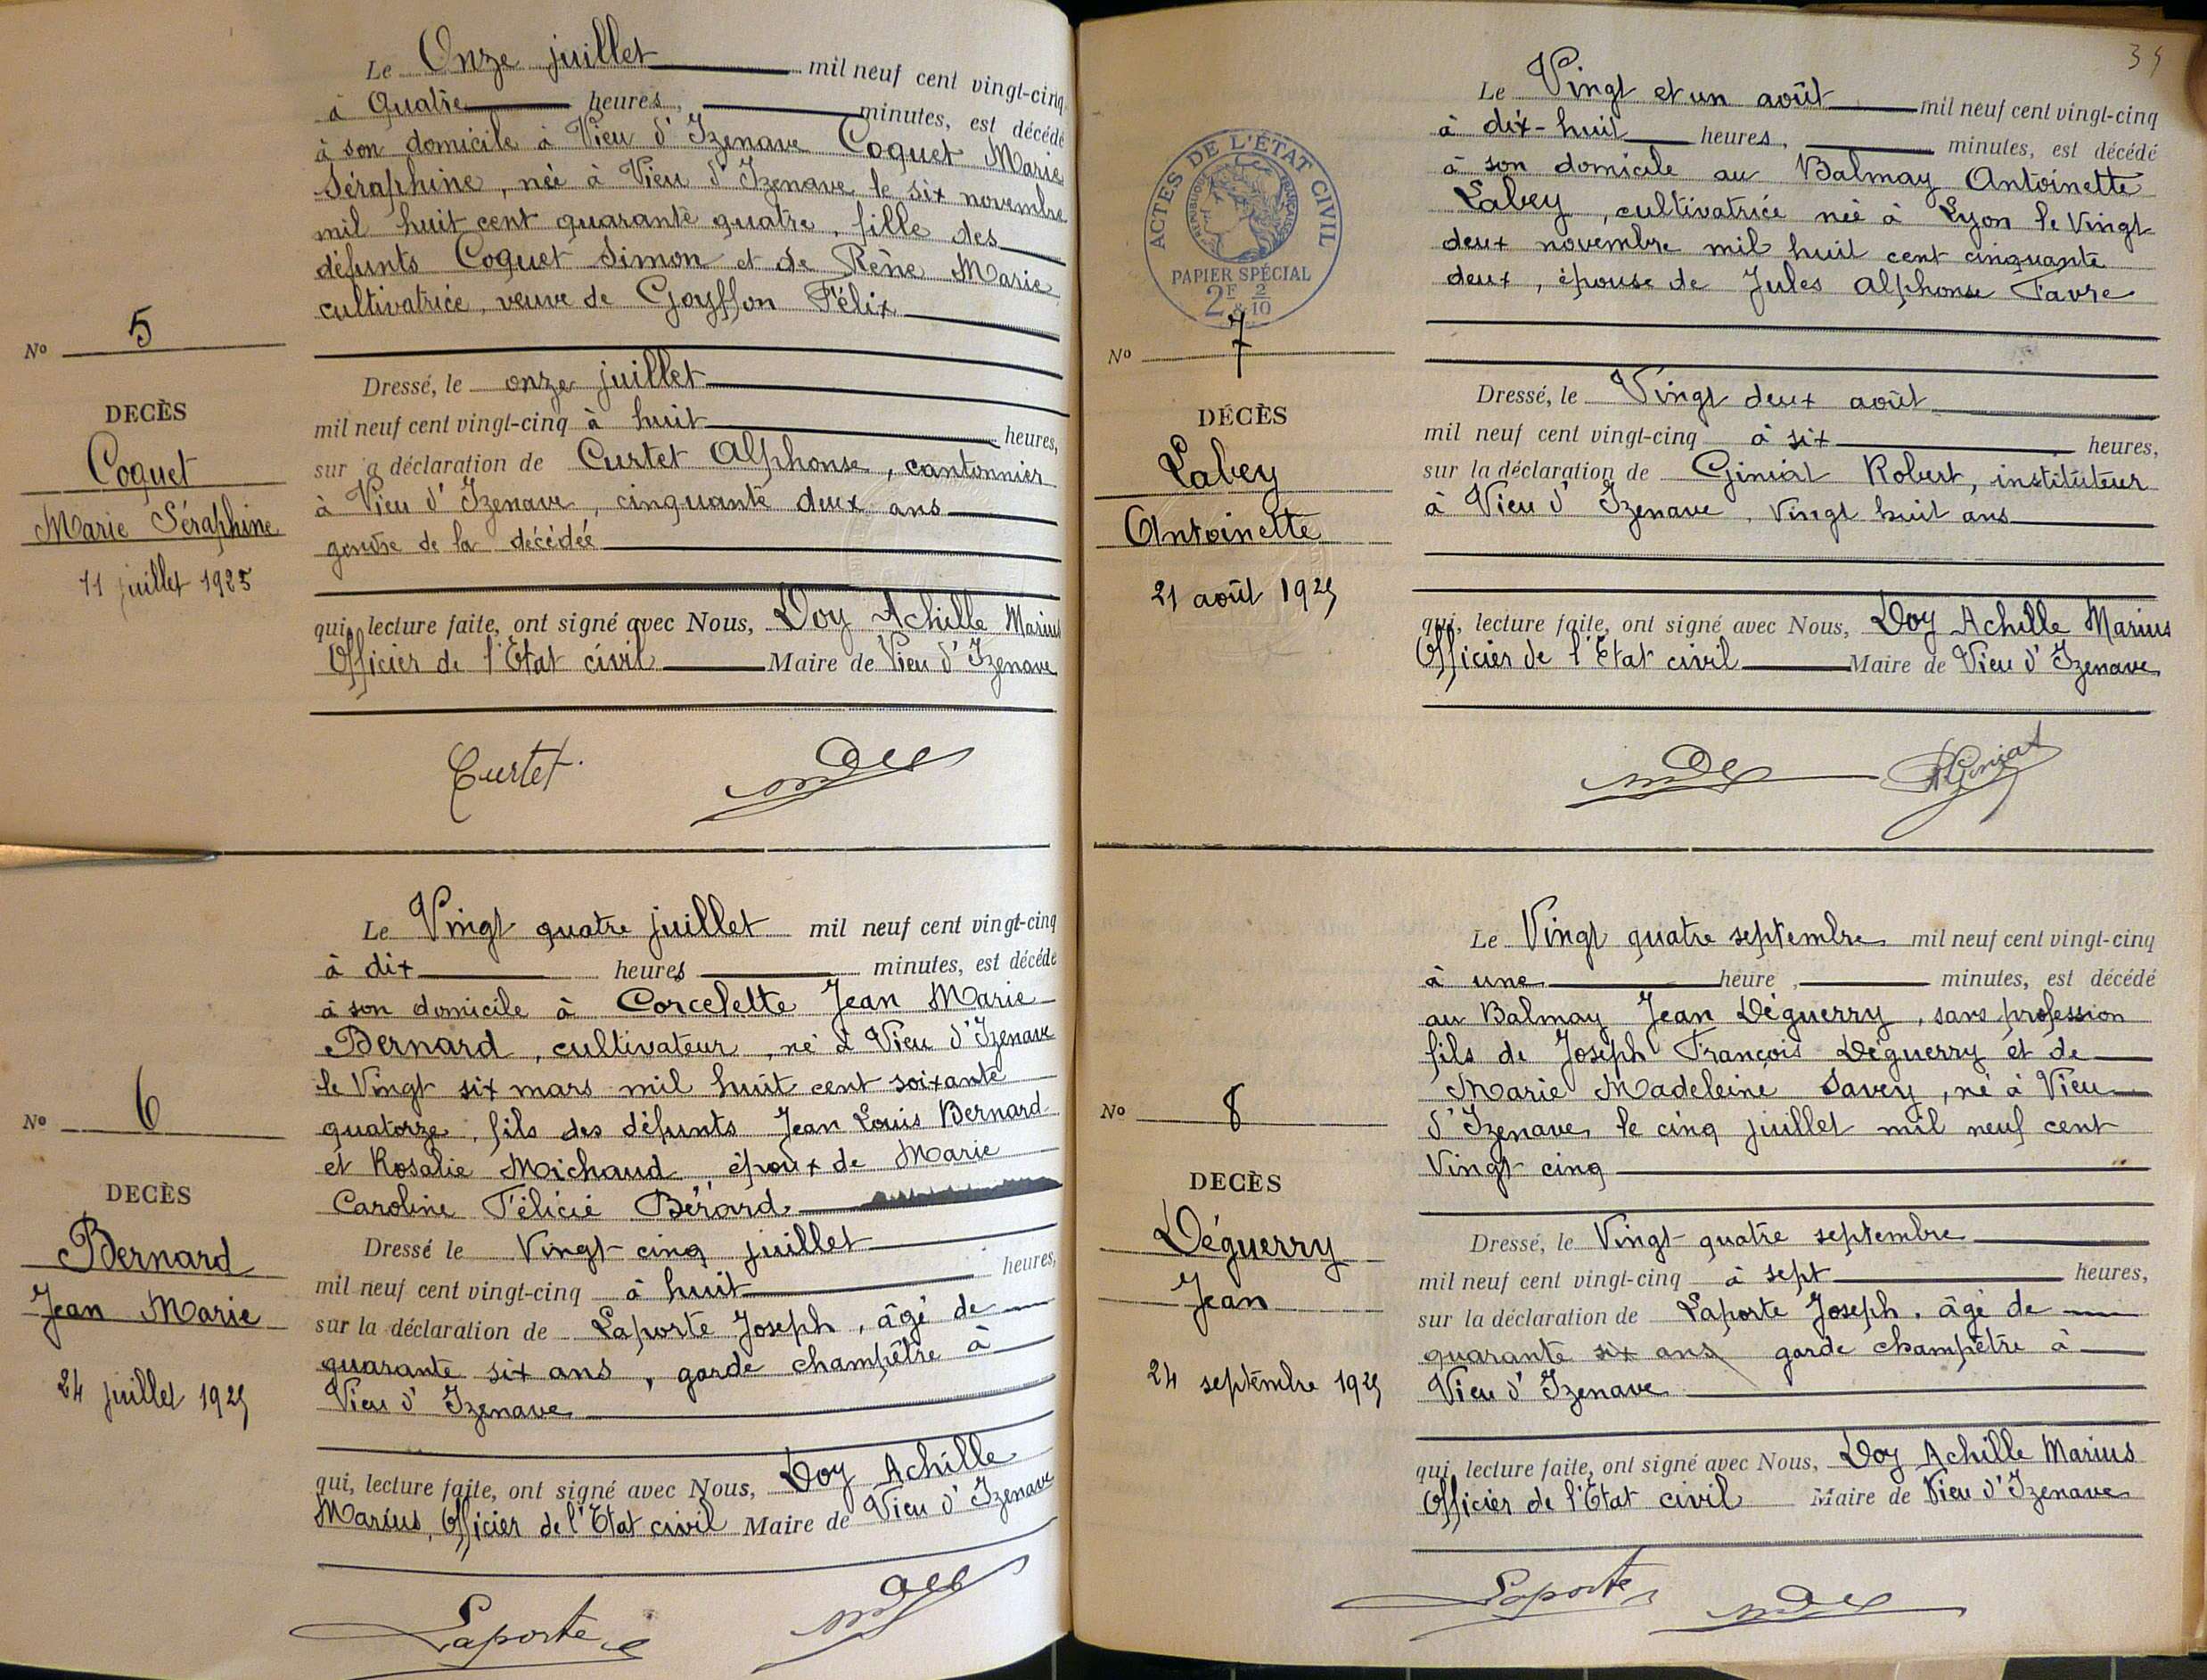 Le Onze juillet mil neuf cent vingt-cinq
à Quatre heures, minutes, est décédé
à son domicile à Vieu d'Izenave Coquet Marie
Séraphine, née à Vieu d'Izenave le six novembre
mil huit cent quarante quatre, fille des
défunts Coquet Simon et de Rène Marie
cultivatrice, veuve de Goyffon Félix
No 5
Dressé, le onze juillet
mil neuf cent vingt-cinq à huit heures,
sur a déclaration de Curtet Alphonse, cantonnier
à Vieu d'Izenave, cinquante deux ans
gendre de la décédée
DECÈS
Coquet
Marie Séraphine
11 juillet 1925
qui, lecture faite, ont signé avec Nous, Doy Achille Marius
Officier de l'Etat civil Maire de Vieu d'Izenave
Curtet
Le Vingt quatre juillet mil neuf cent vingt-cinq
à dix heures minutes, est décédé
à son domicile à Corcelette Jean Marie
Bernard, cultivateur, né à Vieu d'Izenave
le Vingt six mars mil huit cent soixante
quatorze, fils des défunts Jean Louis Bernard
et Rosalie Michaud, époux de Marie
Caroline Félicie Bérard.
No 6
DECÈS
Bernard
Jean Marie
24 juillet 1925
Dressé le Vingt cinq juillet
mil neuf cent vingt-cinq à huit heures,
sur la déclaration de Laporte Joseph, âgé de
quarante six ans, garde champêtre à
Vieu d'Izenave
qui, lecture faite, ont signé avec Nous, Doy Achille
Marius, Officier de l'Etat civil Maire de Vieu d'Izenave
Laporte
39
ACTES DE L'ÉTAT CIVIL
RÉPUBLIQUE FRANÇAISE
PAPIER SPÉCIAL
2F & 2/10
Le Vingt et un août mil neuf cent vingt-cinq
à dix-huit heures, minutes, est décédé
à son domicile au Balmay Antoinette
Labey, cultivatrice née à Lyon le Vingt
deux novembre mil huit cent cinquante
deux, épouse de Jules Alphonse Favre
No 7
DÉCÈS
Labey
Antoinette
21 août 1925
Dressé, le Vingt deux août
mil neuf cent vingt-cinq à six heures,
sur la déclaration de Giniat Robert, instituteur
à Vieu d'Izenave, Vingt huit ans
qui, lecture faite, ont signé avec Nous, Doy Achille Marius
Officier de l'Etat civil Maire de Vieu d'Izenave
R Giniat
Le Vingt quatre septembre mil neuf cent vingt-cinq
à une heure, minutes, est décédé
au Balmay Jean Déguerry, sans profession
fils de Joseph François Déguerry et de
Marie Madeleine Savey, né à Vieu
d'Izenave le cinq juillet mil neuf cent
Vingt cinq
No 8
DECÈS
Déguerry
Jean
24 septembre 1925
Dressé, le Vingt quatre septembre
mil neuf cent vingt-cinq à sept heures,
sur la déclaration de Laporte Joseph, âgé de
quarante six ans garde champêtre à
Vieu d'Izenave
qui, lecture faite, ont signé avec Nous, Doy Achille Marius
Officier de l'Etat civil Maire de Vieu d'Izenave
Laporte